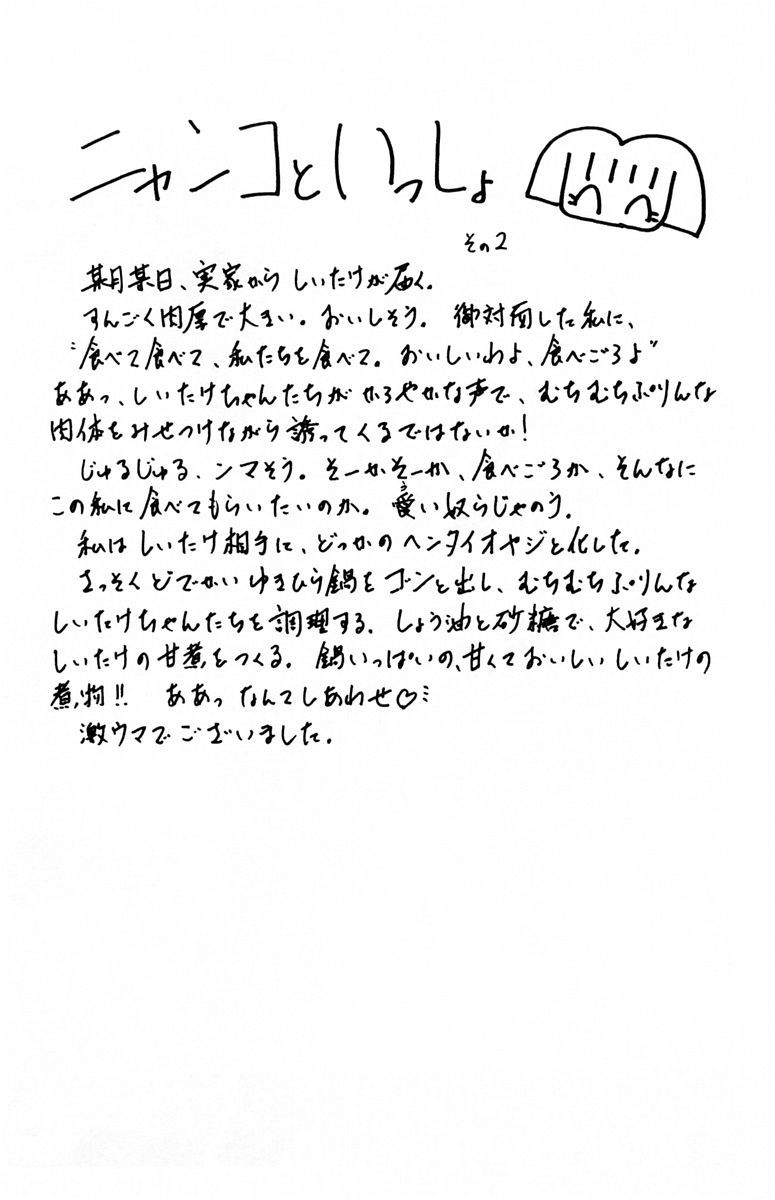 ニャンコといっしょ
その2
某月某日、実家からしいたけが届く。
すんごく肉厚で大きい。おいしそう。御対面した私に、
"食べて食べて、私たちを食べて。おいしいわよ、食べごろよ"
ああっ、しいたけちゃんたちがかろやかな声で、むちむちぷりんな
肉体をみせつけながら誘ってくるではないか!
じゅるじゅる、ンマそう。そーかそーか、食べごろか、そんなに
この私に食べてもらいたいのか。愛い奴らじゃのう。
う
私はしいたけ相手に、どっかのヘンタイオヤジと化した。
さっそくどでかいゆきひら鍋をゴンと出し、むちむちぷりんな
しいたけちゃんたちを調理する。しょう油と砂糖で、大好きな
しいたけの甘煮をつくる。鍋いっぱいの、甘くておいしいしいたけの
煮物!! ああっなんてしあわせ♡
激ウマでございました。